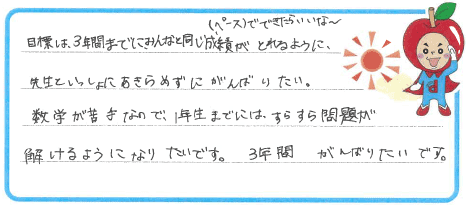 (ペース)でできたらいいな〜
目標は、3年間までにみんなと同じ成績がとれるように、
先生といっしょにあきらめずにがんばりたい。
数学が苦手なので、1年生までには、すらすら問題が
解けるようになりたいです。 3年間 がんばりたいです。